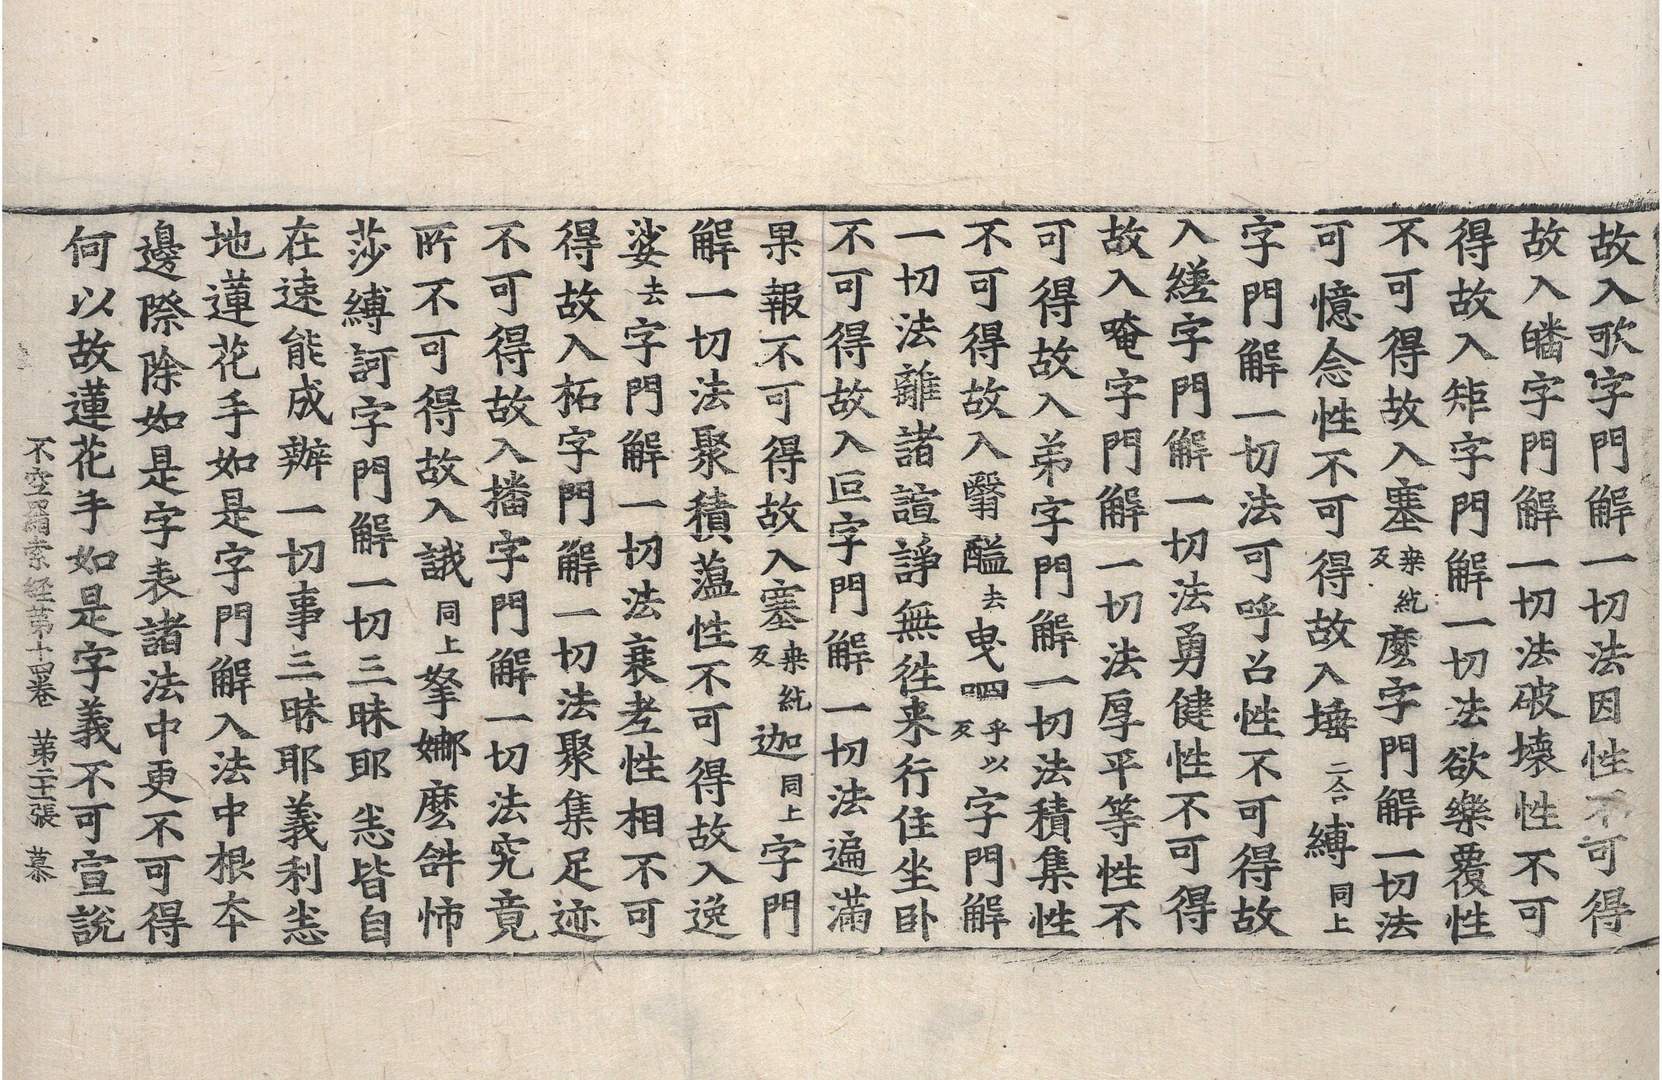 故入歌字門解一切法因性不可得
故入皤字門解一切法破壞性不可
得故入矩字門解一切法欲樂覆性
不可得故入塞桒紇反麼字門解一切法
可憶念性不可得故入㙜二合縛同上
字門解一切法可呼召性不可得故
入縒字門解一切法勇健性不可得
故入唵字門解一切法厚平等性不
可得故入弟字門解一切法積集性
不可得故入翳醯去曳呬乎以反字門解
一切法離諸諠諍無徃来行住坐卧
不可得故入叵字門解一切法遍滿
果報不可得故入塞桒紇反迦同上字門
解一切法聚積薀性不可得故入逸
娑去字門解一切法衰老性相不可
得故入柘字門解一切法聚集足迹
不可得故入播字門解一切法究竟
所不可得故入誐同上拏娜麼䤈怖
莎縛訶字門解一切三昧耶悉皆自
在速能成辦一切事三昧耶義利悉
地蓮花手如是字門解入法中根夲
邊際除如是字表諸法中更不可得
何以故蓮花手如是字義不可宣說
不空羂索經第十四卷 第二十張 慕